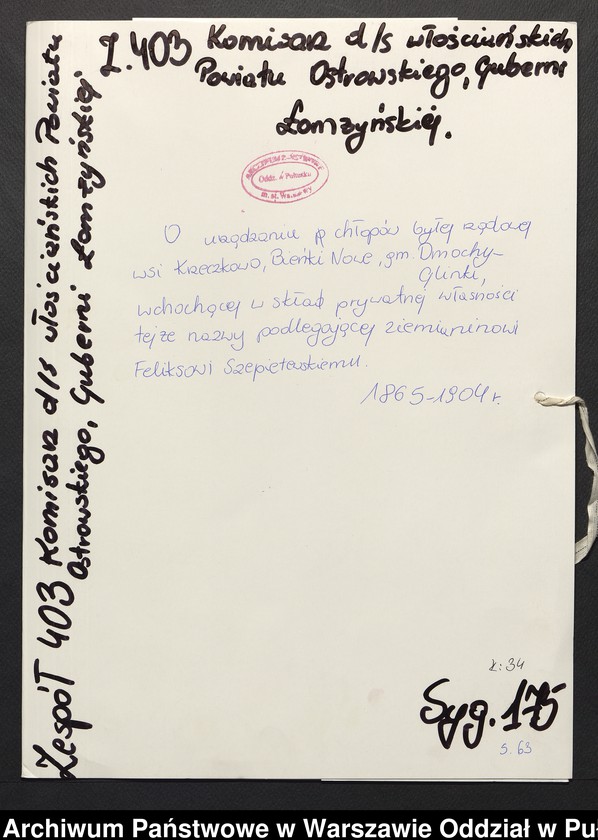 Z.403 Komisarz d/s włościańskich
Powiatu Ostrowskiego, Guberni
Łomżyńskiej.
Oddz. w Pułtusku
m. st. Warszawy
O urządzeniu chłopów byłej rządowej
wsi Krzeczkowo, Bieńki Nowe, gm. Dmochy-
Glinki,
wchochącej w skład prywatnej własności
tejże nazwy podlegającej ziemianinowi
Feliksowi Szepietowskiemu.
1865-1904 r.
Zespół 403 Komisarz d/s włościańskich Powiatu
Ostrowskiego, Guberni Łomżyńskiej
k: 34
Syg. 175
s. 63
Archiwum Państwowe w Warszawie Oddział w Pu